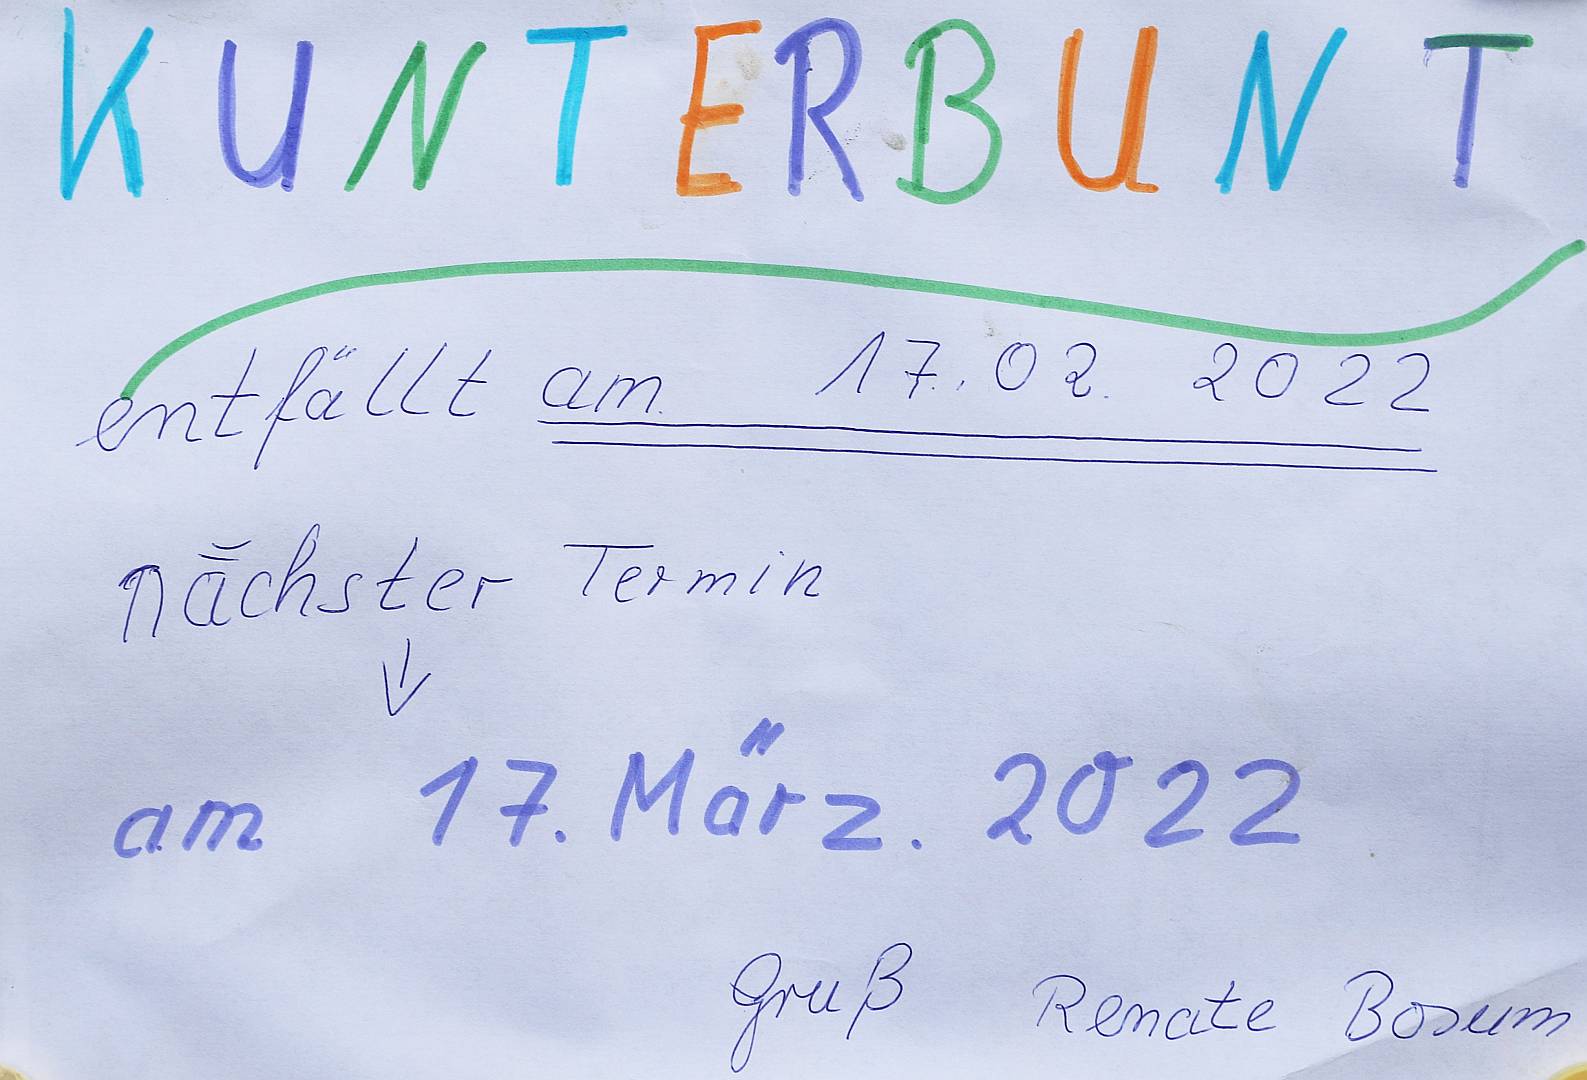 KUNTERBUNT
entfällt am 17.02. 2022
nächster Termin
am 17. März. 2022
Gruß Renate Bosum